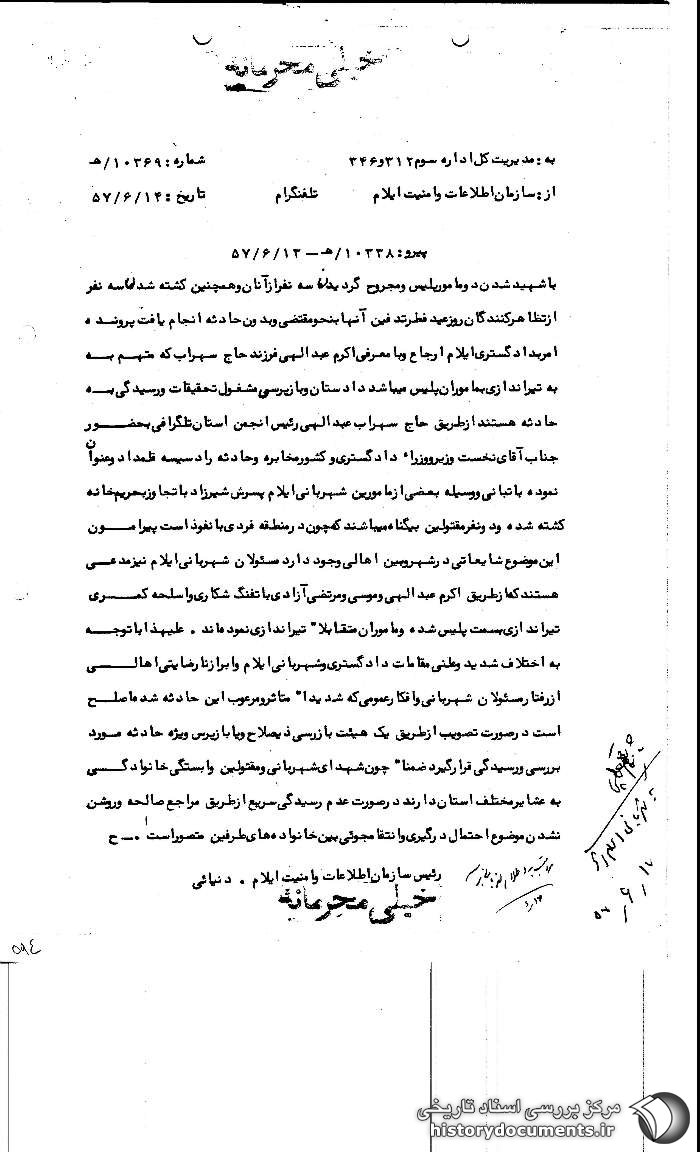 خیلی محرمانه
به : مدیریت کل اداره سوم ۳۱۲ و ۳۴۶
شماره : ۱۰۳۶۹/هـ
از : سازمان اطلاعات و امنیت ایلام
تلفنگرام
تاریخ : ۵۷/۶/۱۴
پیرو : ۱۰۳۳۸/هـ - ۵۷/۶/۱۳
با شهید شدن دو مامور پلیس و مجروح گردیدن سه نفر از آنان و همچنین کشته شدن سه نفر
از تظاهر کنندگان روز عید فطر تدفین آنها بنحو مقتضی و بدون حادثه انجام یافت پرونده
امر بدادگستری ایلام ارجاع و با معرفی اکرم عبدالهی فرزند حاج سهراب که متهم به
به تیراندازی بماموران پلیس میباشد دادستان و بازپرسی مشغول تحقیقات و رسیدگی به
حادثه هستند از طریق حاج سهراب عبدالهی رئیس انجمن استان تلگرافی بحضور
جناب آقای نخست وزیر و وزراء دادگستری و کشور مخابره و حادثه را دسیسه قلمداد و عنوان
نموده با تبانی و وسیله بعضی از مامورین شهربانی ایلام پسرش شیرزاد با تجاوز بحریم خانه
کشته شده و دو نفر مقتولین بیگناه میباشند که چون در منطقه فردی با نفوذ است پیرامون
این موضوع شایعاتی در شهر و بین اهالی وجود دارد مسئولان شهربانی ایلام نیز مدعی
هستند که از طریق اکرم عبدالهی و موسی و مرتضی آزادی با تفنگ شکاری و اسلحه کمری
تیراندازی بسمت پلیس شده و ماموران متقابلا" تیراندازی نموده اند . علیهذا با توجه
به اختلاف شدید وطنی مقامات دادگستری و شهربانی ایلام و ابراز نارضایتی اهالی
از رفتار مسئولان شهربانی و افکار عمومی که شدیدا" متاثر و مرعوب این حادثه شده اصلح
است در صورت تصویب از طریق یک هیئت بازرسی ذیصلاح و یا بازپرس ویژه حادثه مورد
بررسی و رسیدگی قرار گیرد ضمنا" چون شهدای شهربانی و مقتولین وابستگی خانوادگی
به عشایر مختلف استان دارند در صورت عدم رسیدگی سریع از طریق مراجع صالحه و روشن
نشدن موضوع احتمال درگیری و انتقامجوئی بین خانواده های طرفین متصور است . ـ ح
رئیس سازمان اطلاعات و امنیت ایلام . دنیائی
خیلی محرمانه
۵۹۴
مرکز بررسی اسناد تاریخی
historydocuments.ir